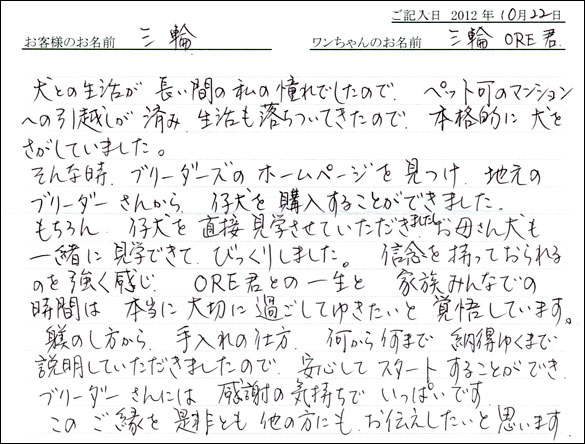 ご記入日 2012 年 10月 22日
お客様のお名前 三輪 ワンちゃんのお名前 三輪 ORE君.
犬との生活が 長い間の私の憧れでしたので、ペット可のマンション
への引越しが 済み 生活も落ちついてきたので、本格的に 犬を
さがしていました。
そんな時、ブリーダーズの ホームページを見つけ、地元の
ブリーダーさんから、仔犬を購入することができました。
もちろん、仔犬を 直接見学させていただきましたしお母さん犬も
一緒に見学できて、びっくりしました。 信念を持っておられる
のを強く感じ、 ORE君との一生と 家族みんなでの
時間は 本当に大切に過ごしてゆきたいと 覚悟しています。
躾のし方から、手入れの仕方、何から何まで 納得ゆくまで
説明していただきましたので、安心してスタートすることができ、
ブリーダーさんには 感謝の気持ちで いっぱいです。
このご縁を 是非とも 他の方にも お伝えしたいと思います。